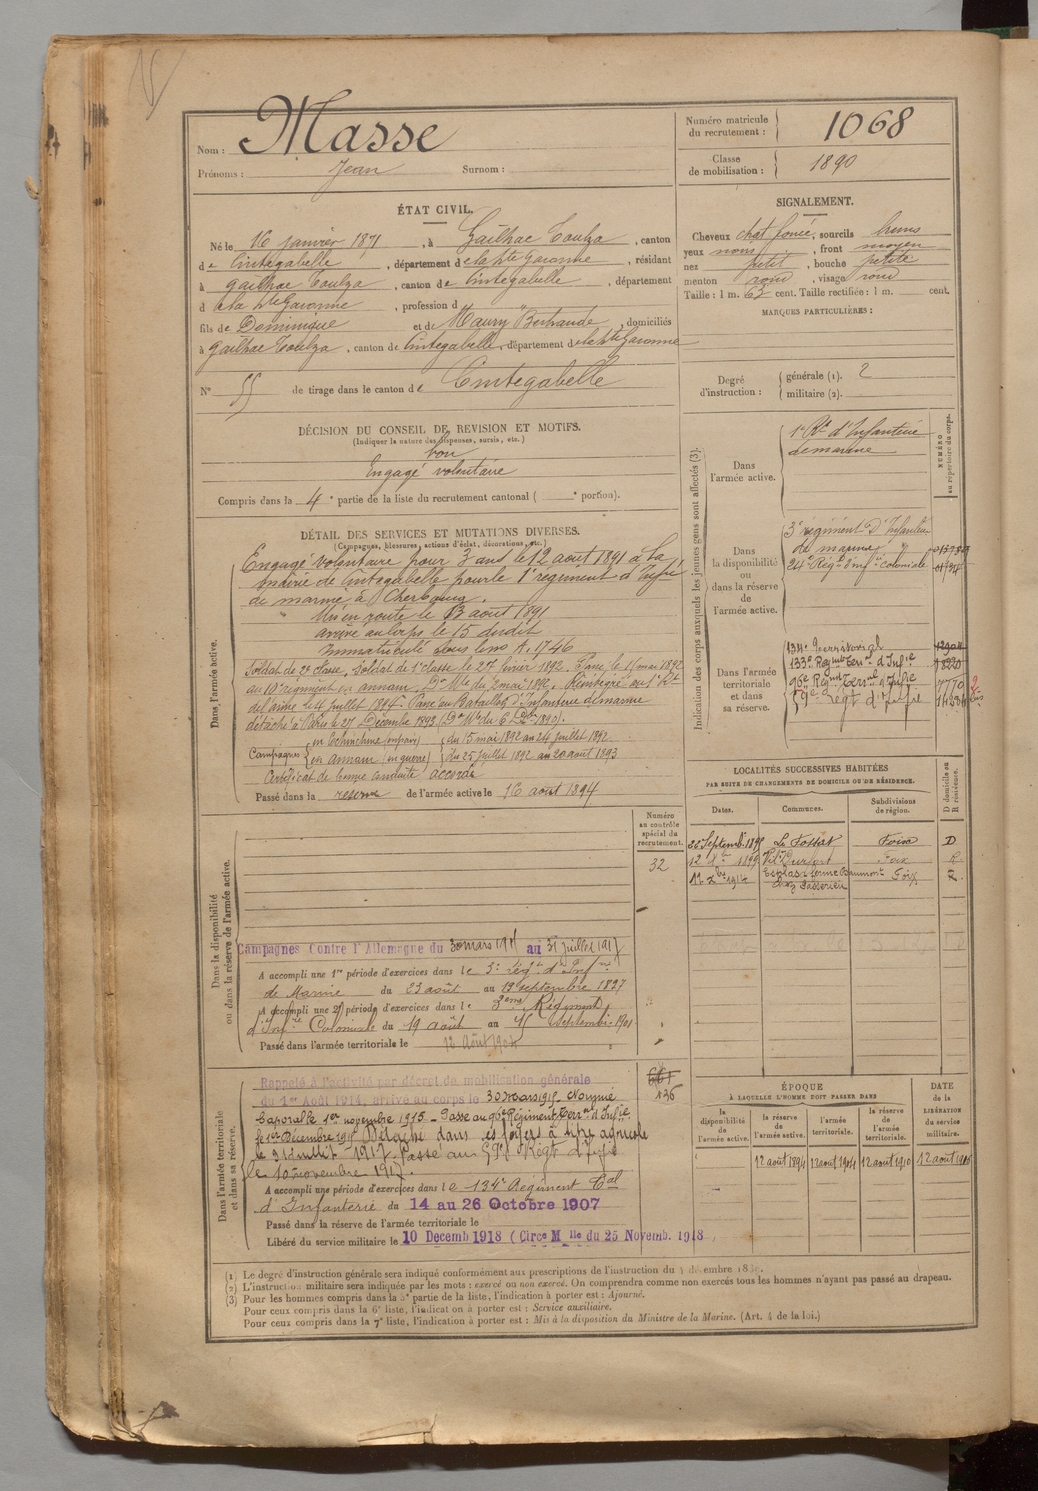 Nom : Masse
Prénoms : Jean Surnom :
Numéro matricule du recrutement : 1068
Classe de mobilisation : 1890
ÉTAT CIVIL.
Né le 16 janvier 1871, à Gailhac Toulza, canton
de Cintegabelle, département de la Hte Garonne, résidant
à Gailhac Toulza, canton de Cintegabelle, département
d e la Hte Garonne, profession d "
fils de Dominique et de Maury Bertrande, domiciliés
à Gailhac Toulza, canton de Cintegabelle, département de la Hte Garonne
N° 55 de tirage dans le canton de Cintegabelle
SIGNALEMENT.
Cheveux chat. foncé, sourcils bruns
yeux noirs, front moyen
nez petit, bouche petite
menton rond, visage rond
Taille : 1 m. 63 cent. Taille rectifiée : 1 m. cent.
MARQUES PARTICULIÈRES :
Degré d'instruction : générale (1). 2
militaire (2).
DÉCISION DU CONSEIL DE REVISION ET MOTIFS.
(Indiquer la nature des dispenses, sursis, etc.)
bon
Engagé volontaire
Compris dans la 4e partie de la liste du recrutement cantonal ( e portion).
DÉTAIL DES SERVICES ET MUTATIONS DIVERSES.
(Campagnes, blessures, actions d'éclat, décorations, etc.)
Dans l'armée active.
Engagé volontaire pour 3 ans le 12 août 1891 à la
mairie de Cintegabelle pour le 1r régiment d'Infie
de marine à Cherbourg.
Mis en route le 13 août 1891
arrivé au corps le 15 dudit
Immatriculé sous le no A. 1746
Soldat de 2e classe, Soldat de 1e classe le 27 février 1892. Passé le 15 mai 1892
au 10e regiment en annam. Don Mle du 2 mai 1892. Réintegré au 1r Rt
de marine le 4 juillet 1894. Passé au Bataillon d'Infanterie de marine
détaché à Paris le 27 Decembre 1893
Campagnes en Cochinchine (en paix) du 15 mai 1892 au 24 juillet 1892
en annam (en guerre) du 25 juillet 1892 au 20 août 1893
Certificat de bonne conduite accordé
Passé dans la reserve de l'armée active le 16 août 1894
Indication des corps auxquels les jeunes gens sont affectés (3).
NUMÉRO au répertoire du corps.
Dans l'armée active.
1r Rt d'Infanterie
de marine
Dans la disponibilité ou dans la réserve de l'armée active.
3e régiment d'Infanterie
de marine
24e Régt d'Infie coloniale
Dans l'armée territoriale et dans sa réserve.
134e Territorial
133e Régmt Terrial d'Infie
96e Régmt Terrial d'Infie 7770
59e Régt d'Infie
LOCALITÉS SUCCESSIVES HABITÉES
PAR SUITE DE CHANGEMENTS DE DOMICILE OU DE RÉSIDENCE.
Dates. Communes. Subdivisions de région. D domicile ou R résidence.
26 Septembre 1895 Le Fossat Foix D
12 d° 1899 Foix R
12 xbre 1914 Esplas ferme Baumont Foix R
Dans la disponibilité ou dans la réserve de l'armée active.
Numéro au contrôle spécial du recrutement.
32
Campagnes Contre l'Allemagne du 30 mars 1915 au 31 juillet 1917
A accompli une 1re période d'exercices dans le 3e régt d'Infrie
de Marine du 23 août au 19 septembre 1897
A accompli une 2e période d'exercices dans le 3eme Régiment
d'Infrie Coloniale du 19 août au 15 septembre 1901
Passé dans l'armée territoriale le 12 Août 1904
Dans l'armée territoriale et dans sa réserve.
Rappelé à l'activité par décret de mobilisation générale
du 1er Août 1914, arrivé au corps le 30 mars 1915. Nommé
Caporal le 1er novembre 1915. Passé au 96e Régiment Terral d'Infie
le 1er Décembre 1915 Détaché dans ses foyers à titre agricole
le 31 Juillet 1917. Passé au 59e Régt d'Infie
le 10 novembre 1917.
136
A accompli une période d'exercices dans le 134e Régiment Tal
d'Infanterie du 14 au 26 Octobre 1907
Passé dans la réserve de l'armée territoriale le
Libéré du service militaire le 10 Decemb 1918 (Circe Mlle du 25 Novemb. 1918
ÉPOQUE
À LAQUELLE L'HOMME DOIT PASSER DANS
la disponibilité de l'armée active.
la réserve de l'armée active.
l'armée territoriale.
la réserve de l'armée territoriale.
DATE de la LIBÉRATION du service militaire.
12 août 1894 12 août 1904 12 août 1910 12 août 1916
(1) Le degré d'instruction générale sera indiqué conformément aux prescriptions de l'instruction du
(2) L'instruction militaire sera indiquée par les mots : exercé ou non exercé. On comprendra comme non exercés tous les hommes n'ayant pas passé au drapeau.
(3) Pour les hommes compris dans la 3e partie de la liste, l'indication à porter est : Ajourné.
Pour ceux compris dans la 6e liste, l'indication à porter est : Service auxiliaire.
Pour ceux compris dans la 7e liste, l'indication à porter est : Mis à la disposition du Ministre de la Marine. (Art. 4 de la loi.)